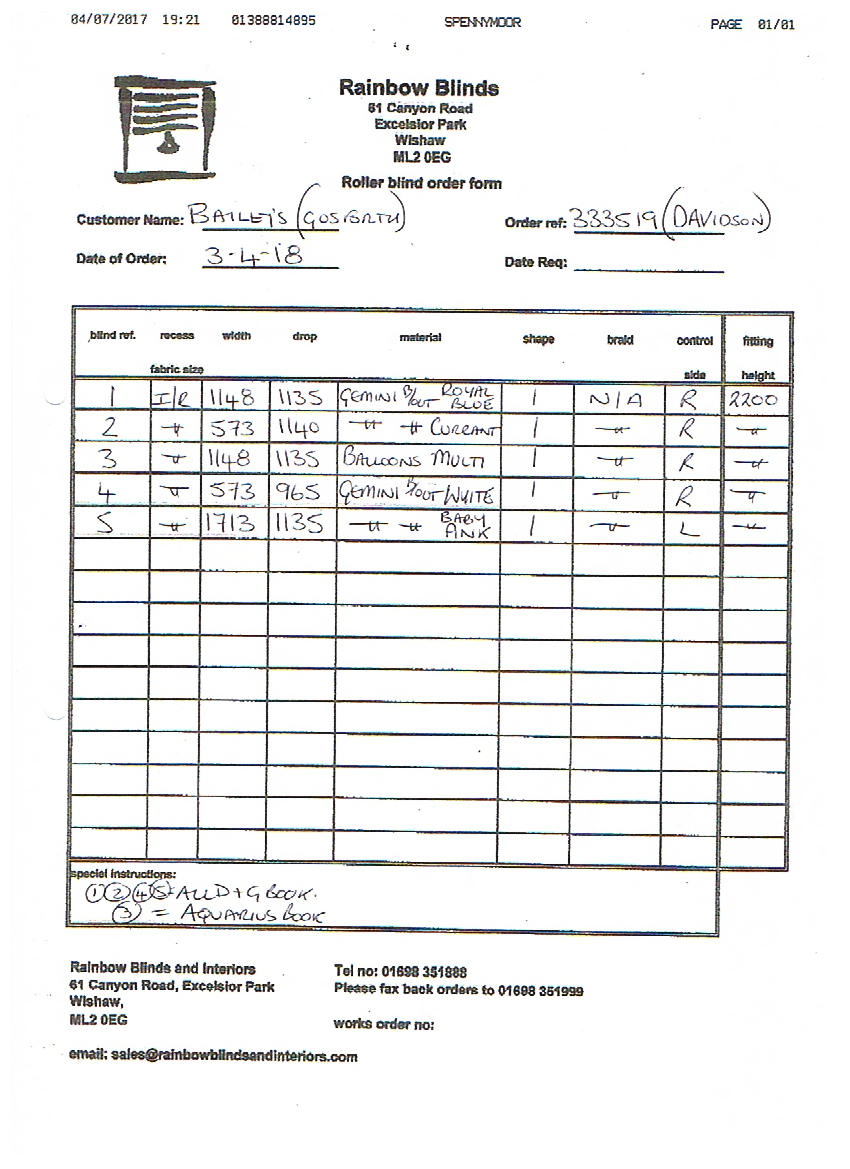 04/07/2017 19:21 01388814895 SPENNYMOOR PAGE 01/01
Rainbow Blinds
61 Canyon Road
Excelsior Park
Wishaw
ML2 0EG
Roller blind order form
Customer Name: BAILEY'S (GOSFORTH) Order ref: 333519 (DAVIDSON)
Date of Order: 3-4-18 Date Req:
blind ref. recess width drop material shape braid control fitting
fabric size side height
1 I/R 1148 1135 GEMINI B/OUT ROYAL BLUE 1 N/A R 2200
2 -"- 573 1140 -"- -"- CURRANT 1 -"- R -"-
3 -"- 1148 1135 BALLOONS MULTI 1 -"- R -"-
4 -"- 573 965 GEMINI B/OUT WHITE 1 -"- R -"-
5 -"- 1713 1135 -"- -"- BABY PINK 1 -"- L -"-
special instructions:
1 2 4 5 = ALL D+G BOOK.
3 = AQUARIUS BOOK
Rainbow Blinds and Interiors Tel no: 01698 351888
61 Canyon Road, Excelsior Park Please fax back orders to 01698 351999
Wishaw,
ML2 0EG works order no:
email: sales@rainbowblindsandinteriors.com